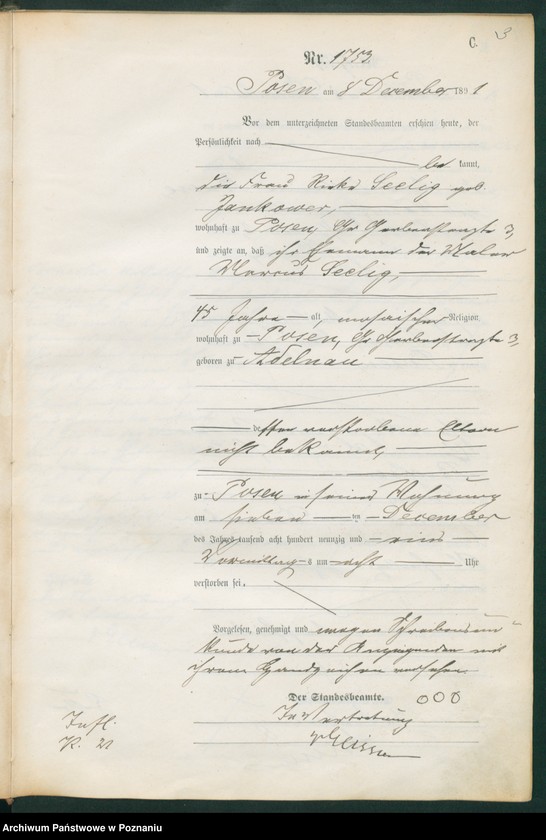 C. 3
Nr. 1753.
Posen am 8 December 1891
Vor dem unterzeichneten Standesbeamten erschien heute, der
Persönlichkeit nach
be kannt,
die Frau Rieke Seelig geb.
Jankower,
wohnhaft zu Posen, Gr Gerberstraße 3,
und zeigte an, daß ihr Ehemann der Maler
Marcus Seelig,
45 Jahre alt, mosaischer Religion,
wohnhaft zu Posen, Gr Gerberstraße 3,
geboren zu Adelnau
dessen verstorbene Eltern
nicht bekannt,
zu Posen in seiner Wohnung
am sieben ten December
des Jahres tausend acht hundert neunzig und eins
Vormittags um acht Uhr
verstorben sei.
Vorgelesen, genehmigt und wegen Schreibensun-
kunde von der Anzeigenden mit
ihrem Handzeichen versehen.
Der Standesbeamte. ooo
In Vertretung
K. 21
Archiwum Państwowe w Poznaniu